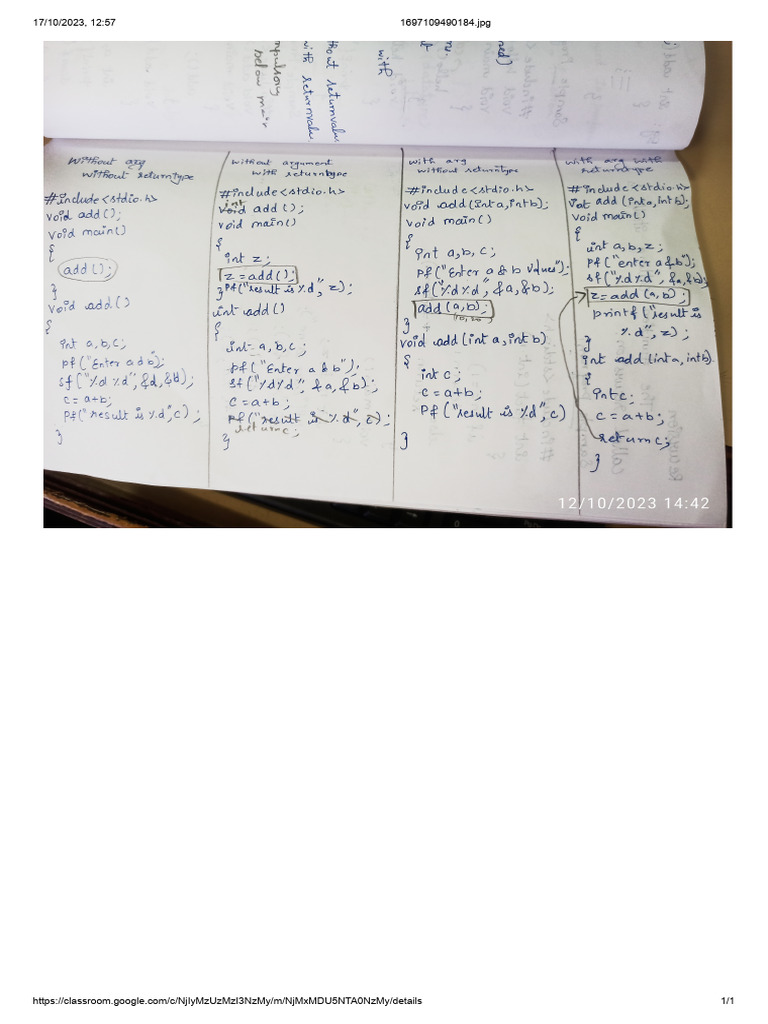 17/10/2023, 12:57
1697109490184.jpg
ned)
with
thout returnvalue
with returnvalue
mpulsory
below main
without arg
without returntype
#include<stdio.h>
void add();
void main()
{
add();
}
void add()
{
int a,b,c;
pf("Enter a d b");
sf("%d %d", &d, &b);
c = a+b;
pf("result is %d",c);
}
without argument
with returntype
#include<stdio.h>
int
void add();
void main()
{
int z;
z = add();
} pf("result is %d", z);
int add()
{
int a,b,c;
pf("Enter a & b");
sf("%d%d", &a,&b);
c = a+b;
pf("result is %d", c);
return c;
}
with arg
without returntype
#include<stdio.h>
void add(int a,int b);
void main()
{
int a,b,c;
pf("Enter a & b values");
sf("%d%d", &a,&b);
add(a,b);
10,20
}
void add(int a,int b)
{
int c;
c = a+b;
pf("result is %d",c)
}
with arg with
returntype
#include<stdio.h>
int add(int a,int b);
void main()
{
int a,b,z;
pf("enter a&b");
sf("%d%d", &a,&b);
z=add(a,b);
printf("result is
%d", z);
}
int add(int a,int b)
{
int c;
c = a+b;
return c;
}
12/10/2023 14:42
https://classroom.google.com/c/NjIyMzUzMzI3NzMy/m/NjMxMDU5NTA0NzMy/details
1/1